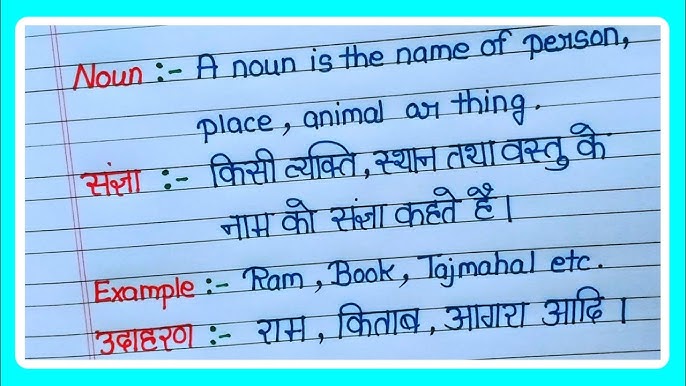 Noun :- A noun is the name of person,
place, animal or thing.
संज्ञा :- किसी व्यक्ति, स्थान तथा वस्तु के
नाम को संज्ञा कहते है।
Example :- Ram, Book, Tajmahal etc.
उदाहरण :- राम, किताब, आगरा आदि।